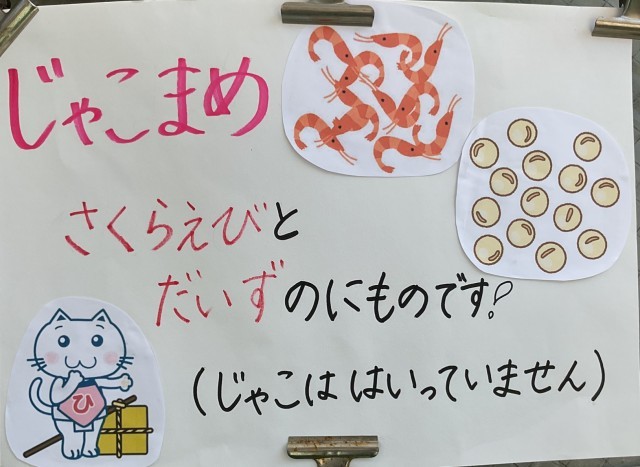 じゃこまめ
さくらえびと
だいずのにものです!
(じゃこは はいっていません)
ひ